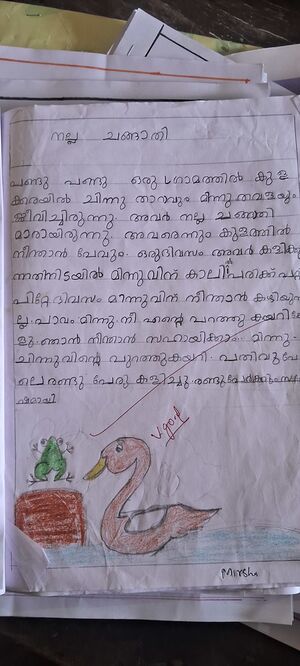 നല്ല ചങ്ങാതി
പണ്ടു പണ്ടു ഒരു ഗ്രാമത്തിൽ കുള
ക്കരയിൽ ചിന്നു താറാവും മിന്നു തവളയും
ജീവിച്ചിരുന്നു. അവർ നല്ല ചങ്ങാതി
മാരായിരുന്നു. അവരെന്നും കുളത്തിൽ
നീന്താൻ പോവും. ഒരുദിവസം അവർ കളിക്കു
ന്നതിനിടയിൽ മിന്നുവിന് കാലിൽ പരിക്ക് പറ്റി
പിറ്റേദിവസം മിന്നുവിന് നീന്താൻ കഴിയുന്നി
ല്ല. പാവം മിന്നു. നീ എന്റെ പുറത്തു കയറിക്കോ
ളു ഞാൻ നീന്താൻ സഹായിക്കാം. മിന്നു
ചിന്നുവിന്റെ പുറത്തുകയറി. പതിവുപോ
ലെ രണ്ടു പേരു കളിച്ചു. രണ്ടുപേർക്കും സന്തോ
ഷമായി
V.good
Minsha